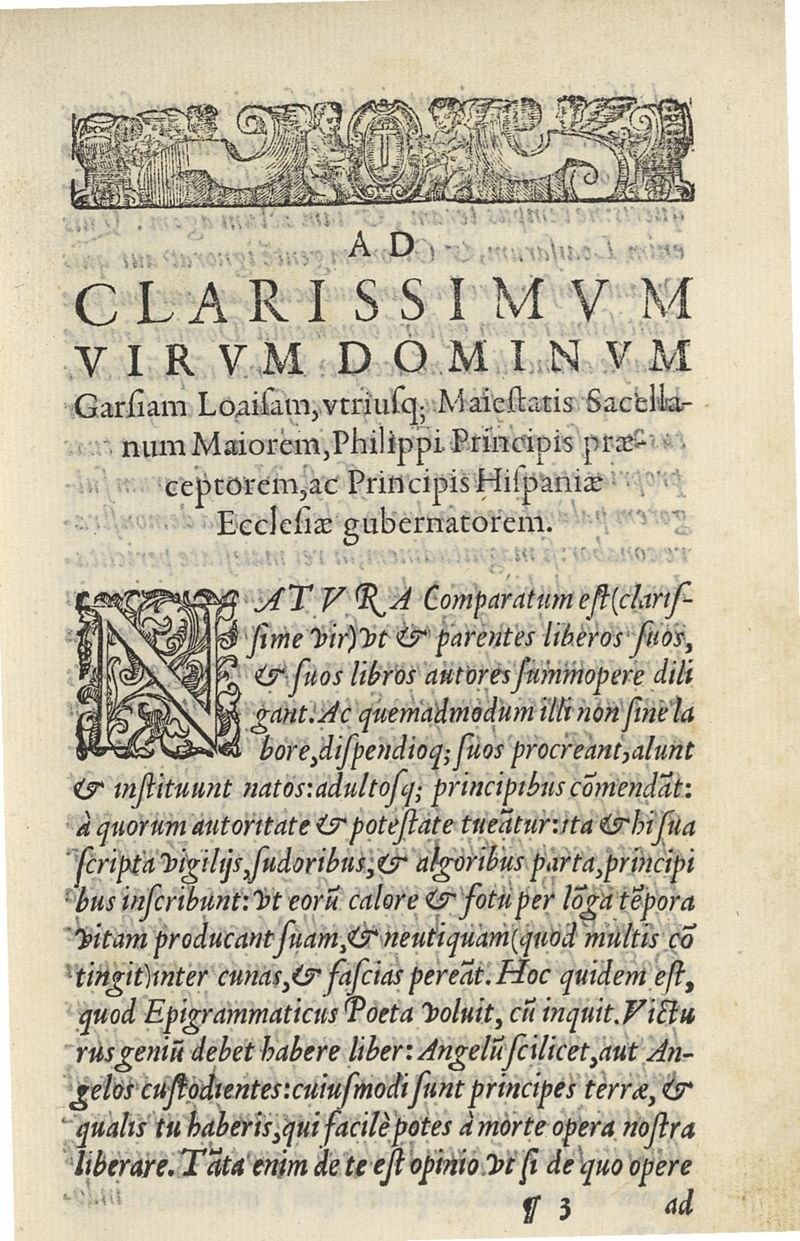 AD
CLARISSIMVM
VIRVM DOMINVM
Garsiam Loaisam, vtriusq; Maiestatis Sacella-
num Maiorem, Philippi Principis præ-
ceptorem, ac Principis Hispaniæ
Ecclesiæ gubernatorem.
NATVRA Comparatum est (claris-
sime vir) vt & parentes liberos suos,
& suos libros autores summopere dili
gant. Ac quemadmodum illi non sine la
bore, dispendioq; suos procreant, alunt
& instituunt natos: adultosq; principibus cōmendāt:
à quorum autoritate & potestate tueātur: ita & hi sua
scripta vigilijs, sudoribus, & algoribus parta, principi
bus inscribunt: vt eorū calore & fotu per lōga tēpora
vitam producant suam, & neutiquam (quod multis cō
tingit) inter cunas, & fascias pereāt. Hoc quidem est,
quod Epigrammaticus Poeta voluit, cū inquit. Victu
rus geniū debet habere liber: Angelū scilicet, aut An-
gelos custodientes: cuiusmodi sunt principes terræ, &
qualis tu haberis, qui facilè potes à morte opera nostra
liberare. Tāta enim de te est opinio vt si de quo opere
¶ 3 ad